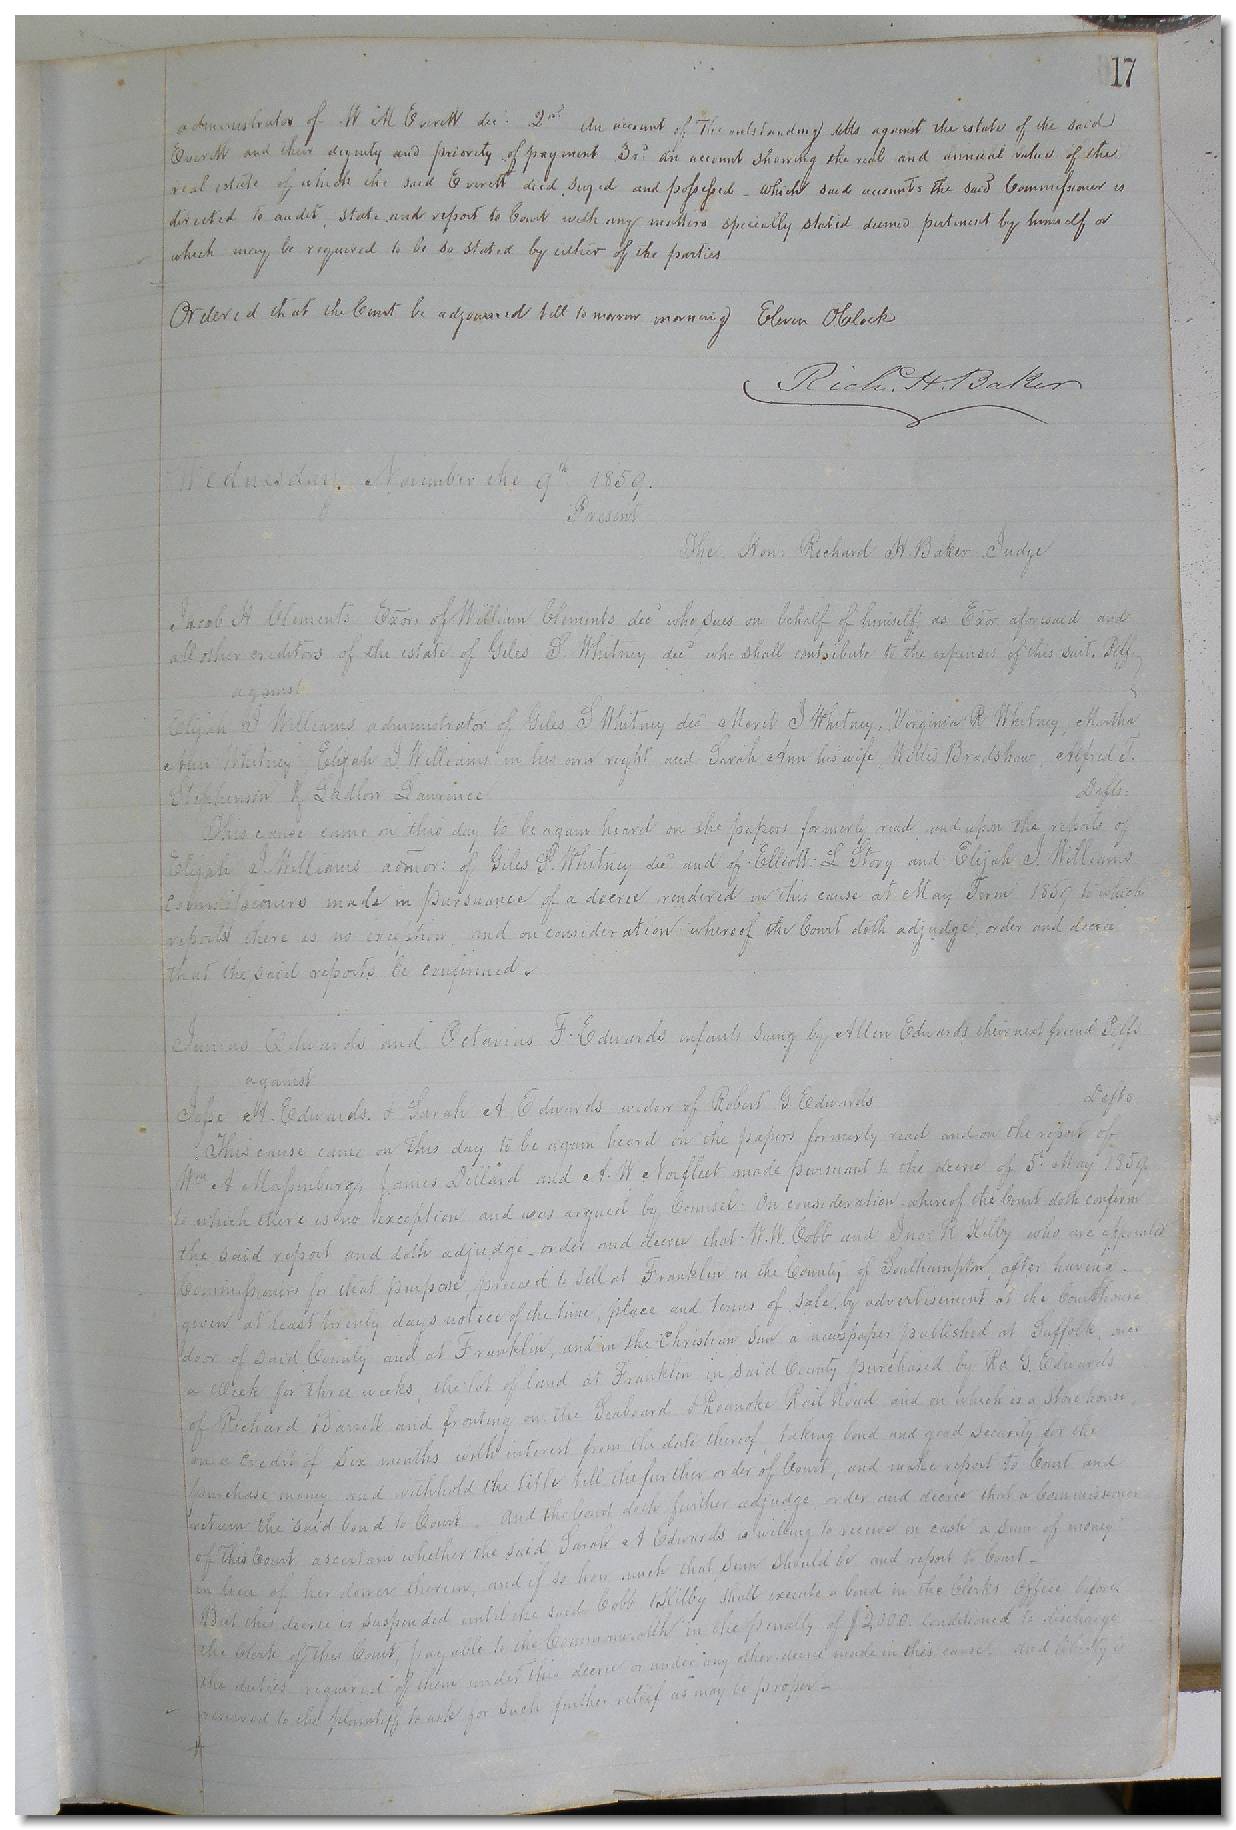 17
administrator of W M Everett dec: 2nd An account of The outstanding debts against the estate of the said
Everett and their dignity and priority of payment 3rd an account showing the real and annual value of the
real estate of which the said Everett died siezed and possessed - which said accounts the said Commissioner is
directed to audit, state and report to Court with any matters specially stated deemed pertinent by himself or
which may be required to be so stated by either of the parties
Ordered that the Court be adjourned till tomorrow morning Eleven OClock
Rich. H. Baker
Wednesday. November the 9th 1859.
Present
The Hon: Richard H Baker Judge
Jacob H Clements Exor. of William Clements decd who sues on behalf of himself, as Exor aforesaid and
all other creditors of the estate of Giles S. Whitney decd who shall contribute to the expenses of this suit. Plff
against
Elijah J Williams administrator of Giles S Whitney decd Merit J Whitney, Virginia R Whitney, Martha
Ann Whitney Elijah J. Williams in his own right and Sarah Ann his wife, Willis Bradshaw, Alfred J.
Stephenson & Ludlow Lawrence Defts:
This cause came on this day to be again heard on the papers formerly read, and upon the reports of
Elijah J. Williams admor: of Giles S. Whitney decd and of Elliott L Story and Elijah J Williams
Commissioners made in pursuance of a decree rendered in this cause at May Term 1859 to which
reports there is no exception, and on consideration whereof the Court doth adjudge, order and decree
that the said reports be confirmed.
Junius Edwards and Octavius F. Edwards infants suing by Allen Edwards their next friend Plffs
against
Jesse H. Edwards. & Sarah A. Edwards widow of Robert G. Edwards Defts
This cause came on this day to be again heard on the papers formerly read and on the report of
Wm A Massenburg, James Dillard and A. W Norfleet made pursuant to the decree of 5th May 1859
to which there is no exception and was argued by Counsel: On consideration whereof the Court doth confirm
the said report and doth adjudge order and decree that W. W. Cobb and Jno: R Kilby who are appointed
Commissioners for that purpose, proceed to sell at Franklin in the County of Southampton, after having
given at least twenty days notice of the time, place and terms of sale, by advertisement at the Courthouse
door of said County and at Franklin, and in the Christian Sun a newspaper published at Suffolk, once
a week for three weeks, the lot of land at Franklin in said County purchased by Ro. G. Edwards
of Richard Barrett and fronting on the Seaboard & Roanoke Rail Road, and on which is a store house,
on a credit of six months with interest from the date thereof, taking bond and good security for the
purchase money and withhold the title till the further order of Court, and make report to Court and
return the said bond to Court. And the Court doth further adjudge, order and decree that a Commissioner
of this Court ascertain whether the said Sarah A Edwards is willing to receive in cash a sum of money
in lieu of her dower therein, and if so how much that sum should be and report to Court -
But this decree is suspended until the said Cobb & Kilby shall execute a bond in the Clerks Office before
the Clerk of this Court, payable to the Commonwealth in the penalty of $2,000. conditioned to discharge
the duties required of them under this decree or under any other decree made in this cause. And liberty is
reserved to the plaintiffs to ask for such further relief as may be proper -